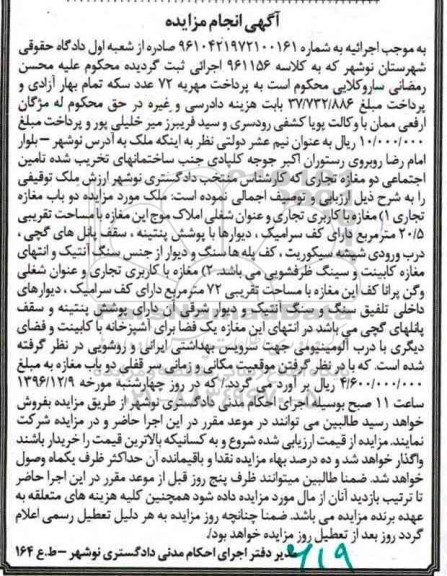 آگهی انجام مزایده
به موجب اجرائیه به شماره ۹۶۱۰۴۲۱۹۷۲۱۰۰۱۶۱ صادره از شعبه اول دادگاه حقوقی
شهرستان نوشهر که به کلاسه ۹۶۱۱۵۶ اجرائی ثبت گردیده محکوم علیه محسن
رمضانی ساروکلایی محکوم است به پرداخت مهریه ۷۲ عدد سکه تمام بهار آزادی و
پرداخت مبلغ ۳۷/۷۳۲/۸۸۶ بابت هزینه دادرسی و غیره در حق محکوم له مژگان
ارفعی ممان با وکالت پویا کشفی رودسری و سید فریبرز میر خلیلی پور و پرداخت مبلغ
۱۰/۰۰۰/۰۰۰ ریال به عنوان نیم عشر دولتی نظر به اینکه ملک به آدرس نوشهر – بلوار
امام رضا روبروی رستوران اکبر جوجه کلبادی جنب ساختمانهای تخریب شده تامین
اجتماعی دو مغازه تجاری که کارشناس منتخب دادگستری نوشهر ارزش ملک توقیفی
را به شرح ذیل ارزیابی و توصیف اجمالی نموده است: ملک مورد مزایده دو باب مغازه
تجاری ۱) مغازه با کاربری تجاری و عنوان شغلی املاک موج این مغازه با مساحت تقریبی
۲۰/۵ مترمربع دارای کف سرامیک ، دیوارها با پوشش پنتینه ، سقف پانل های گچی ،
درب ورودی شیشه سیکوریت ، کف پله ها سنگ و دیوار از جنس سنگ آنتیک و انتهای
مغازه کابینت و سینگ ظرفشویی می باشد. ۲) مغازه با کاربری تجاری و عنوان شغلی
وگن پرانا کف این مغازه با مساحت تقریبی ۷۲ مترمربع دارای کف سرامیک ، دیوارهای
داخلی تلفیق سنگ و سنگ آنتیک و دیوار شرقی آن دارای پوشش پنتینه و سقف
پانلهای گچی می باشد در انتهای این مغازه یک فضا برای آشپزخانه با کابینت و فضای
دیگری با درب آلومینیومی جهت سرویس بهداشتی ایرانی و روشویی در نظر گرفته
شده است. که با در نظر گرفتن موقعیت مکانی و زمانی سر قفلی دو باب مغازه به مبلغ
۴/۶۰۰/۰۰۰/۰۰۰ ریال بر آورد می گردد./ که در روز چهارشنبه مورخه ۱۳۹۶/۱۲/۹
ساعت ۱۱ صبح بوسیله اجرای احکام مدنی دادگستری نوشهر از طریق مزایده بفروش
خواهد رسید طالبین می توانند در موعد مقرر در این اجرا حاضر و در مزایده شرکت
نمایند. مزایده از قیمت ارزیابی شده شروع و به کسانیکه بالاترین قیمت را خریدار باشند
واگذار خواهد شد و ده درصد بهاء مزایده نقدا و باقیمانده آن حداکثر ظرف یکماه وصول
خواهد شد. ضمنا طالبین میتوانند ظرف پنج روز قبل از موعد مقرر در این اجرا حاضر
تا ترتیب بازدید آنان از مال مورد مزایده داده شود همچنین کلیه هزینه های متعلقه به
عهده برنده مزایده می باشد. ضمنا چنانچه روز مزایده به هر دلیل تعطیل رسمی اعلام
گردد روز بعد از تعطیل روز مزایده خواهد بود./
مدیر دفتر اجرای احکام مدنی دادگستری نوشهر – ط.ع ۱۶۴
۶۱۹